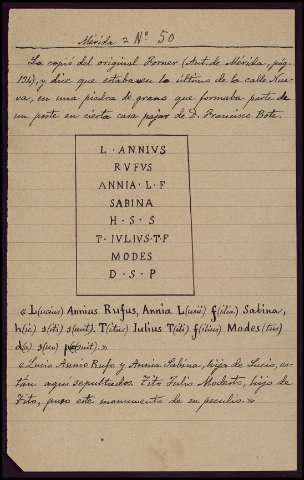 Mérida 2 Nº 50
La copió del original Forner (Ant. de Mérida, pág.
124), y dice que estaba en lo último de la calle Nue-
va, en una piedra de grano que formaba parte de
un poste en cierta casa pajar de D. Francisco Bote.
L · ANNIVS
RVFVS
ANNIA · L · F
SABINA
H · S · S
T · IVLIVS · T · F
MODES
D · S · P
« L(ucius) Annius Rufus, Annia L(ucii) f(ilia) Sabina,
h(ic) s(iti) s(unt). T(itus) Iulius T(iti) f(ilius) Modes(tus)
d(e) s(uo) p(osuit). »
« Lucio Annio Rufo y Annia Sabina, hija de Lucio, es-
tán aquí sepultados. Tito Julio Modesto, hijo de
Tito, puso este monumento de su peculio. »